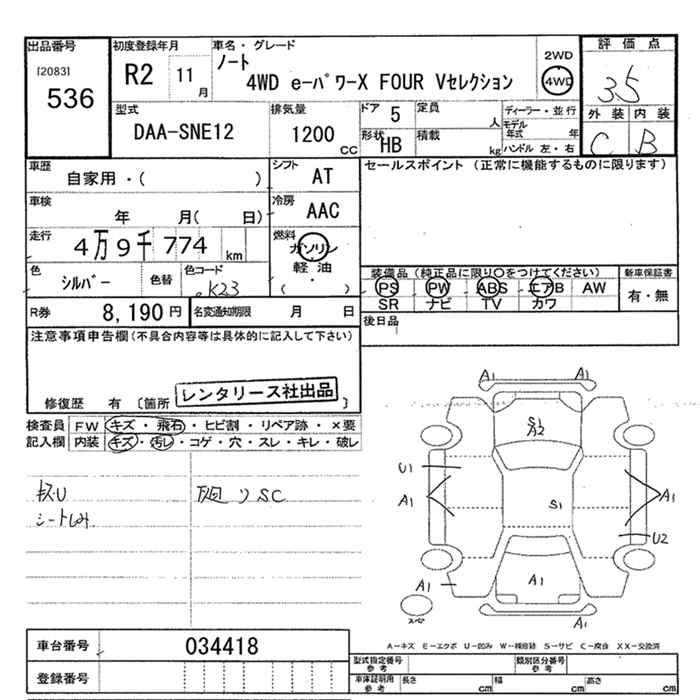 出品番号 初度登録年月 車名・グレード 評価点
[2083] R2 11月 ノート 2WD 3.5
536 4WD e-パワーX FOUR Vセレクション 4WD
型式 排気量 ドア 5 定員 人 ディーラー・並行 外装 内装
DAA-SNE12 1200 CC 形状 HB 積載 kg モデル年式 年 C B
ハンドル 左・右
車歴 シフト セールスポイント (正常に機能するものに限ります)
自家用・( ) AT
車検 年 月( 日) 冷房 AAC
走行 4万9千774 km 燃料 ガソリン
軽油
( ・ )
色 シルバー 色替 色コード K23 装備品 (純正品に限り○をつけてください) 新車保証書
PS PW ABS エアB AW 有・無
SR ナビ TV カワ
R券 8,190 円 名変通知期限 月 日 後日品
注意事項申告欄(不具合内容等は具体的に記入して下さい)
修復歴 有 [箇所 レンタリース社出品 ]
検査員 FW キズ・飛石・ヒビ割・リペア跡・×要
記入欄 内装 キズ・汚レ・コゲ・穴・スレ・キレ・破レ
シートしみ
SC
A1
A1
S1
A2
U1
A1
S1
A1
U2
A1
A1
スペア
A1
A-キズ E-エクボ U-凹み W-補修跡 S-サビ C-腐食 XX-交換済
車台番号 034418 型式指定番号 参考 類別区分番号 参考
登録番号 車庫証明用 参考 長さ cm 幅 cm 高さ cm